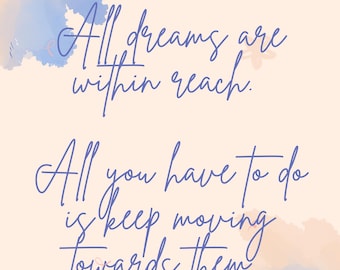 All dreams are
within reach.
All you have to do
is keep moving
towards them